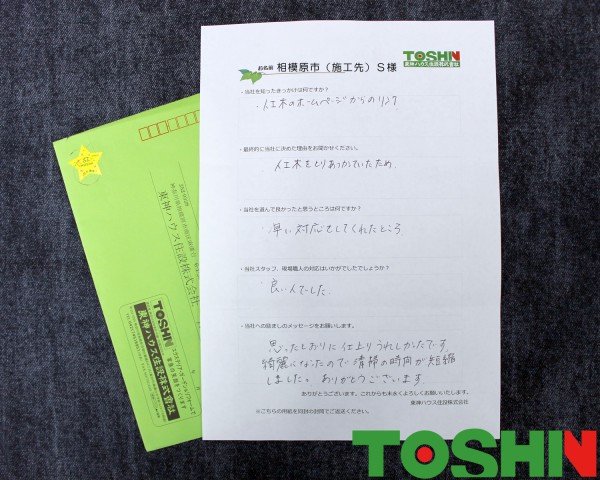 TOSHIN
東神ハウス住設株式会社
お名前 相模原市（施工先）S様
・当社を知ったきっかけは何ですか？
・人工木のホームページからのリンク
・最終的に当社に決めた理由をお聞かせください。
人工木をとりあつかていたため
・当社を選んで良かったと思うところは何ですか？
早い対応をしてくれたところ
・当社スタッフ、現場職人の対応はいかがでしたでしょうか？
良い人でした
・当社への励ましのメッセージをお願いします。
思ったとおりに仕上りうれしかったです。
綺麗になったので清掃の時間が短縮
しました。ありがとうございます
ありがとうございます。これからも末永くよろしくお願いいたします。
東神ハウス住設株式会社
※こちらの用紙を同封の封筒でご返送ください。
東神ハウス住設株式会社
TOSHIN
東神ハウス住設株式会社
TOSHIN